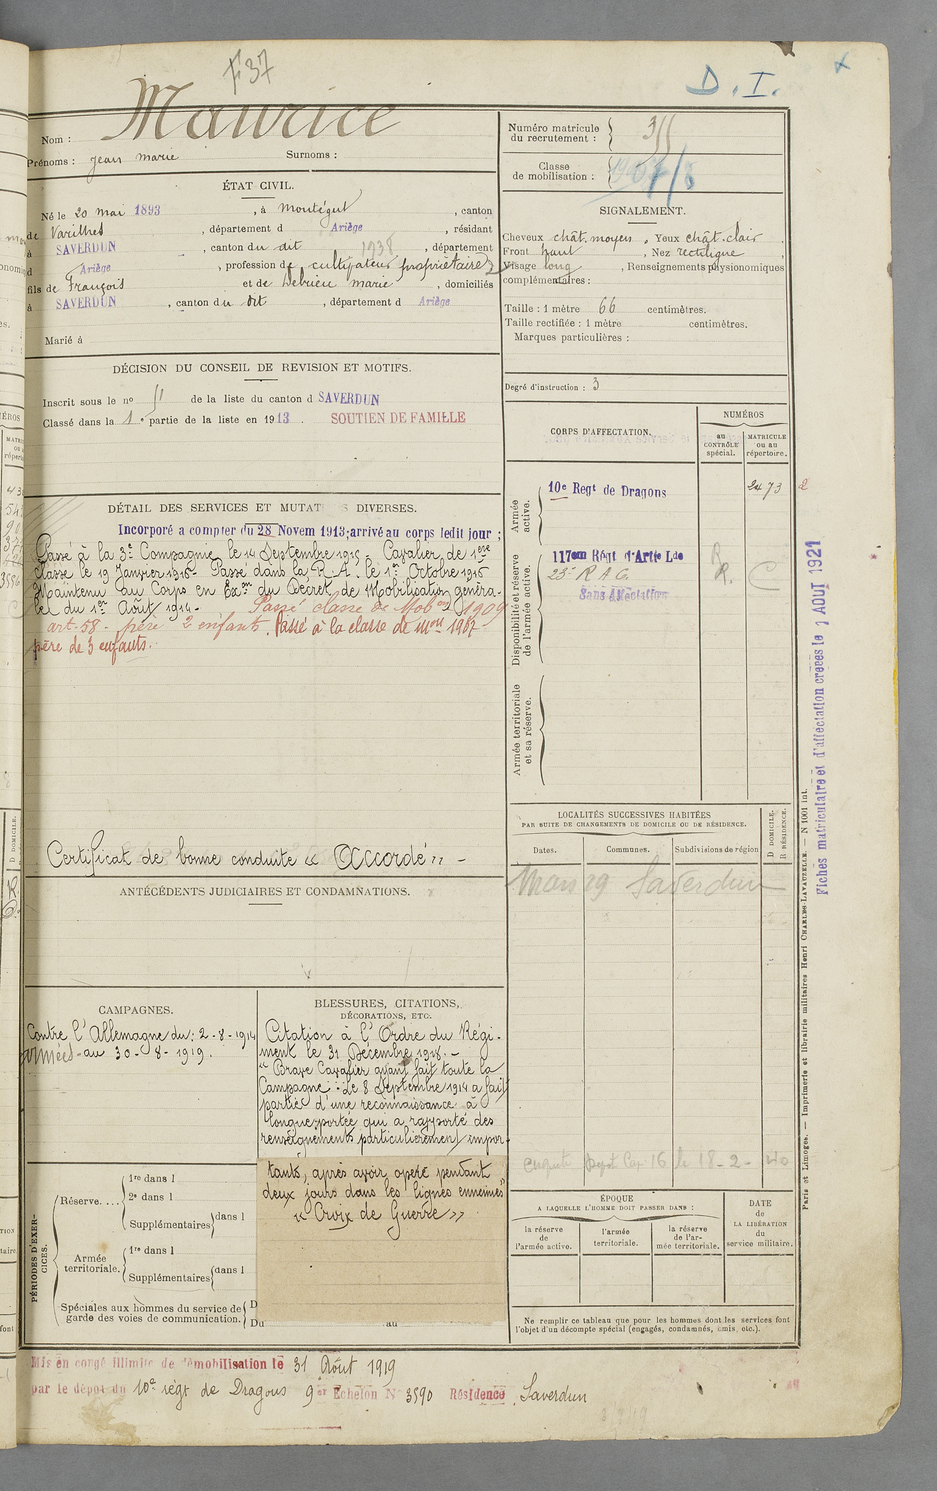 F 37
D. I.
Maurice
Nom :
Prénoms : Jean Marie Surnoms :
Numéro matricule
du recrutement :
Classe
de mobilisation :
ÉTAT CIVIL.
Né le 20 mai 1893, à Montégut, canton
de Varilhes, département d Ariège, résidant
à SAVERDUN, canton du dit 1938, département
d Ariège, profession de cultivateur propriétaire
fils de François et de Debrieu Marie, domiciliés
à SAVERDUN, canton du dit, département d Ariège
Marié à
SIGNALEMENT.
Cheveux chât. moyen, Yeux chât. clair,
Front haut, Nez rectiligne,
Visage long, Renseignements physionomiques
complémentaires :
Taille : 1 mètre 66 centimètres.
Taille rectifiée : 1 mètre centimètres.
Marques particulières :
Degré d'instruction : 3
DÉCISION DU CONSEIL DE REVISION ET MOTIFS.
Inscrit sous le no 51 de la liste du canton d SAVERDUN
Classé dans la 1e partie de la liste en 1913. SOUTIEN DE FAMILLE
DÉTAIL DES SERVICES ET MUTATIONS DIVERSES.
Incorporé a compter du 28 Novem 1913; arrivé au corps ledit jour ;
Passé à la 3e Compagnie le 14 Septembre 1915 - Cavalier de 1ère
Classe le 19 Janvier 1916 - Passé dans la R.A. le 1er Octobre 1916
Maintenu au Corps en Exon du Décret de Mobilisation généra-
le du 1er Août 1914 - Passé classe de Mobon 1909
art. 58 - père 2 enfants. Passé à la classe de mon 1907
père de 3 enfants.
Certificat de bonne conduite « Accordé » -
CORPS D'AFFECTATION.
NUMÉROS
au
CONTRÔLE
spécial.
MATRICULE
ou au
répertoire.
Armée
active.
10e Regt de Dragons 2473 2
Disponibilité et réserve
de l'armée active.
117em Régt d'Artie Lde
23e R A C.
Sans Affectation
R.
C
Armée territoriale
et sa réserve.
Fiches matriculaire et d'affectation créées le 7 AOUT 1921
ANTÉCÉDENTS JUDICIAIRES ET CONDAMNATIONS.
LOCALITÉS SUCCESSIVES HABITÉES
PAR SUITE DE CHANGEMENTS DE DOMICILE OU DE RÉSIDENCE.
Dates. Communes. Subdivisions de région
D DOMICILE.
R RÉSIDENCE.
Mars 19 Saverdun
Dépôt Cav 16 le 18-2-40
CAMPAGNES.
Contre l'Allemagne du : 2-8-1914
au 30-8-1919.
BLESSURES, CITATIONS,
DÉCORATIONS, ETC.
Citation à l'Ordre du Régi-
ment le 31 Décembre 1918. -
"Brave Cavalier ayant fait toute la
Campagne : Le 8 Septembre 1914 a fait
partie d'une reconnaissance à
longue portée qui a rapporté des
renseignements particulièrement impor-
tants, après avoir opéré pendant
deux jours dans les lignes ennemies"
« Croix de Guerre »
PÉRIODES D'EXER-
CICES.
Réserve....
1re dans l
2e dans l
Supplémentaires dans l
Armée
territoriale.
1re dans l
Supplémentaires dans l
Spéciales aux hommes du service de
garde des voies de communication.
D
Du au
ÉPOQUE
A LAQUELLE L'HOMME DOIT PASSER DANS :
la réserve
de
l'armée active.
l'armée
territoriale.
la réserve
de l'ar-
mée territoriale.
DATE
de
LA LIBÉRATION
du
service militaire.
Ne remplir ce tableau que pour les hommes dont les services font
l'objet d'un décompte spécial (engagés, condamnés, omis, etc.).
Paris et Limoges. — Imprimerie et librairie militaires Henri CHARLES-LAVAUZELLE. — N 1001 int.
Mis en congé illimité de démobilisation le 31 Août 1919
par le dépôt du 10e régt de Dragons 9e Echelon N° 3590 Résidence Saverdun